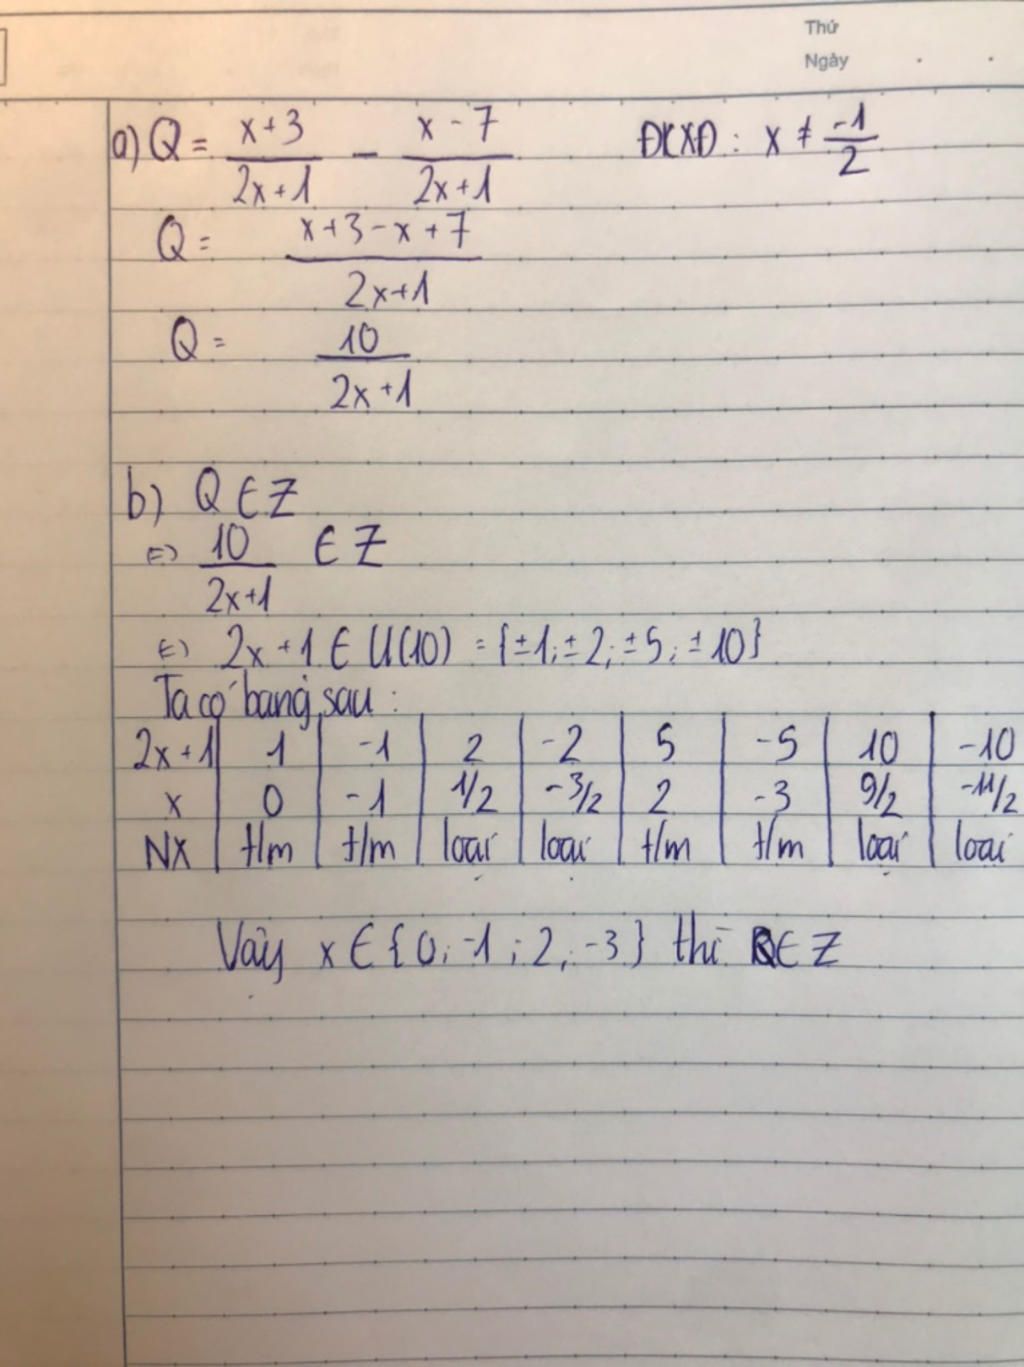 Thứ
Ngày
a) Q = x+3/2x+1 - x-7/2x+1 ĐKXĐ: x ≠ -1/2
Q = x+3-x+7/2x+1
Q = 10/2x+1
b) Q ∈ Z
=> 10/2x+1 ∈ Z
2x+1 ∈ Ư(10) = {±1;±2;±5;±10}
Ta có bảng sau:
2x+1 1 -1 2 -2 5 -5 10 -10
x 0 -1 1/2 -3/2 2 -3 9/2 -11/2
NX t/m t/m loại loại t/m t/m loại loại
Vậy x ∈ {0;-1;2;-3} thì Q ∈ Z